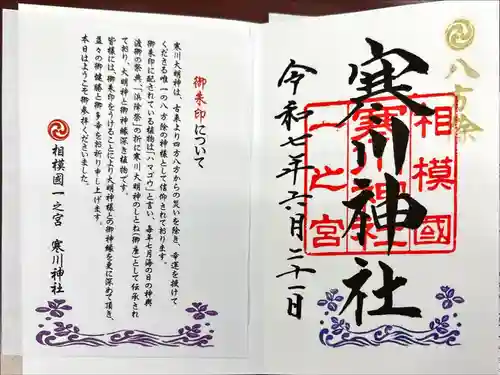 御朱印について
寒川大明神は、古来より四方八方からの災いを除き、幸運を授けて
くださる唯一の八方除の神様として信仰されております。
御朱印に配されている植物は「ハマゴウ」と言い、毎年七月海の日の神輿
渡御の祭典「浜降祭」の折に寒川大明神のしとね(御座)として伝承され
ており、大明神と御神縁深き植物です。
皆様には、御朱印をうけることにより大明神様との御神縁を更に深めて頂き、
益々の御健勝と御多幸をお祈り申し上げます。
本日はようこそ御参拝くださいました。
相模國一之宮 寒川神社
八方除
相模國
寒川神社
一之宮
寒川神社
令和七年六月二十一日